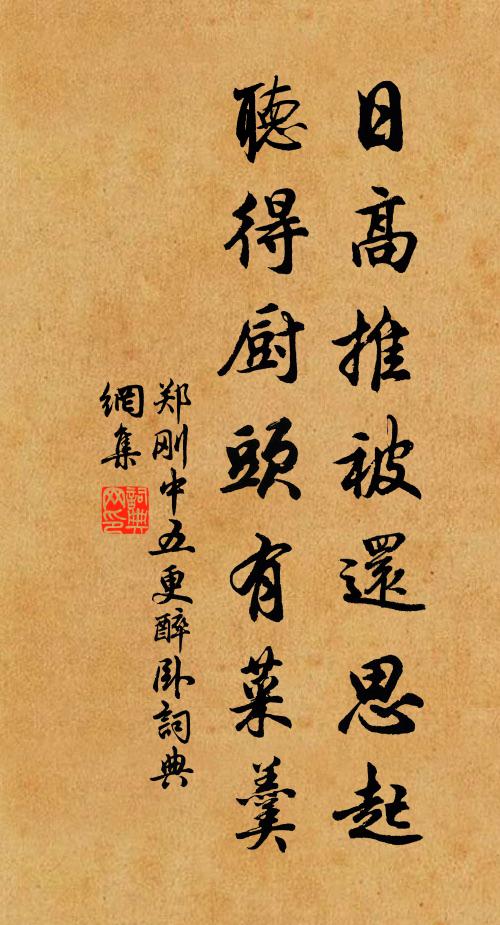 日高推被還思起
聽得厨頭有菜羹
郑刚中五更醉卧詞典
網集
詞典
网印